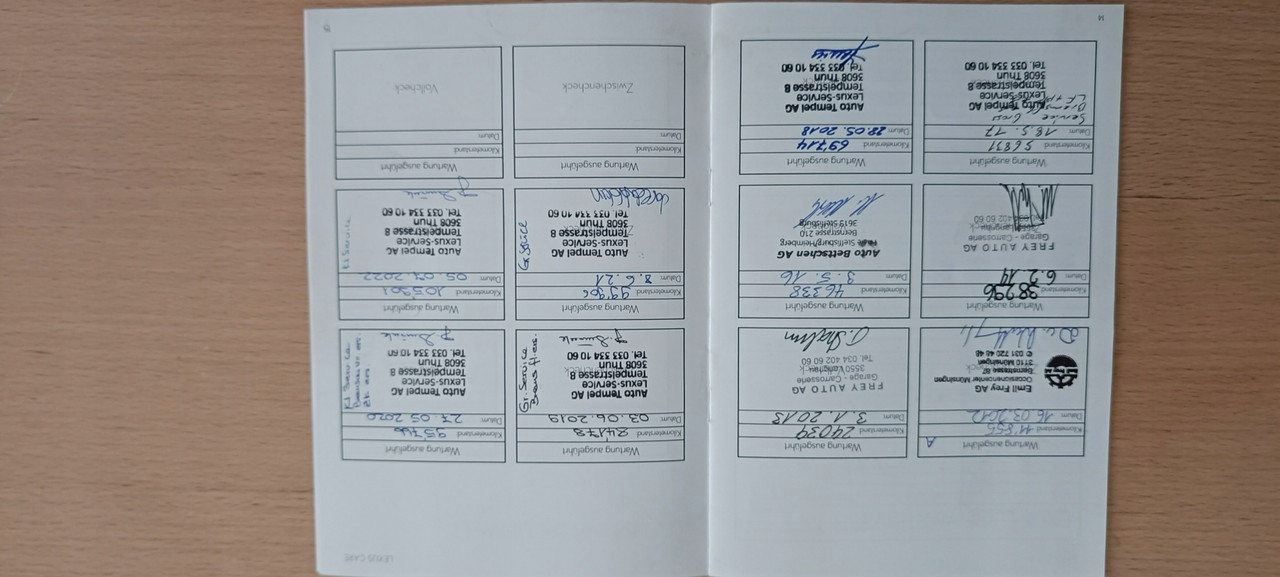 Wartung ausgeführt A
Kilometerstand 11'855
Datum 16 03 2012
Emil Frey AG
Occasionencenter Münsingen
Bernstrasse
3110 Münsingen
✆ 031 720 46 46
Wartung ausgeführt
Kilometerstand 24039
Datum 3.1.2013
FREY AUTO AG
Garage - Carrosserie
3550 Langnau
Tel. 034 402 60 60
Wartung ausgeführt
Kilometerstand 38296
Datum 6.2.14
FREY AUTO AG
Garage - Carrosserie
3550 Langnau
402 60 60
Wartung ausgeführt
Kilometerstand 46338
Datum 3.5.16
Auto Bettschen AG
Steffisburg/Heimberg
Bernstrasse 210
3613 Steffisburg
Wartung ausgeführt
Kilometerstand 56831
Datum 18.5.17
Service Gross
Auto Tempel AG
Lexus-Service
Tempelstrasse 8
3608 Thun
Tel. 033 334 10 60
Wartung ausgeführt
Kilometerstand 69714
Datum 28.05.2018
Auto Tempel AG
Lexus-Service
Tempelstrasse 8
3608 Thun
Tel. 033 334 10 60
14
LEXUS CARE
Wartung ausgeführt
Kilometerstand 84178
Datum 03.06.2019
Gr. Service
Auto Tempel AG
Lexus-Service
Tempelstrasse 8
3608 Thun
Tel. 033 334 10 60
Wartung ausgeführt
Kilometerstand 95766
Datum 27.05.2020
Kl. Service
Auto Tempel AG
Lexus-Service
Tempelstrasse 8
3608 Thun
Tel. 033 334 10 60
Wartung ausgeführt
Kilometerstand 99906
Datum 8.6.21
Gr. Service
Auto Tempel AG
Lexus-Service
Tempelstrasse 8
3608 Thun
Tel. 033 334 10 60
Wartung ausgeführt
Kilometerstand 105901
Datum 05.07.2022
Kl Service
Auto Tempel AG
Lexus-Service
Tempelstrasse 8
3608 Thun
Tel. 033 334 10 60
Wartung ausgeführt
Kilometerstand
Datum
Zwischencheck
Wartung ausgeführt
Kilometerstand
Datum
Vollcheck
15